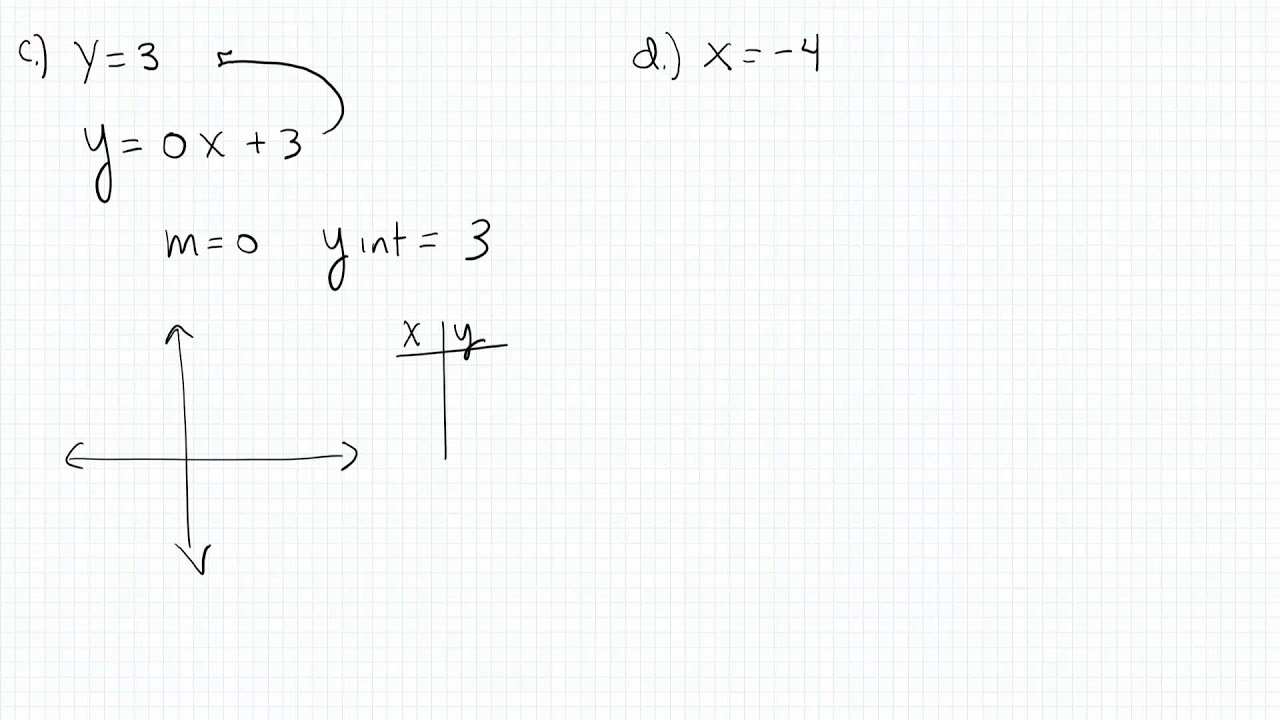 c.) y = 3
y = 0x + 3
m = 0 y int = 3
x y
d.) x = -4